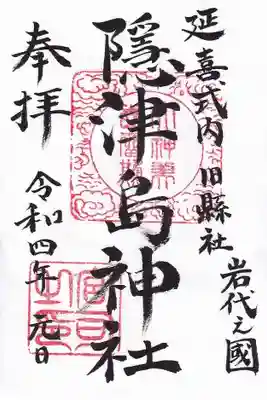 延喜式内 旧縣社
岩代之國
隠津島神社
奉拝
令和四年 元日